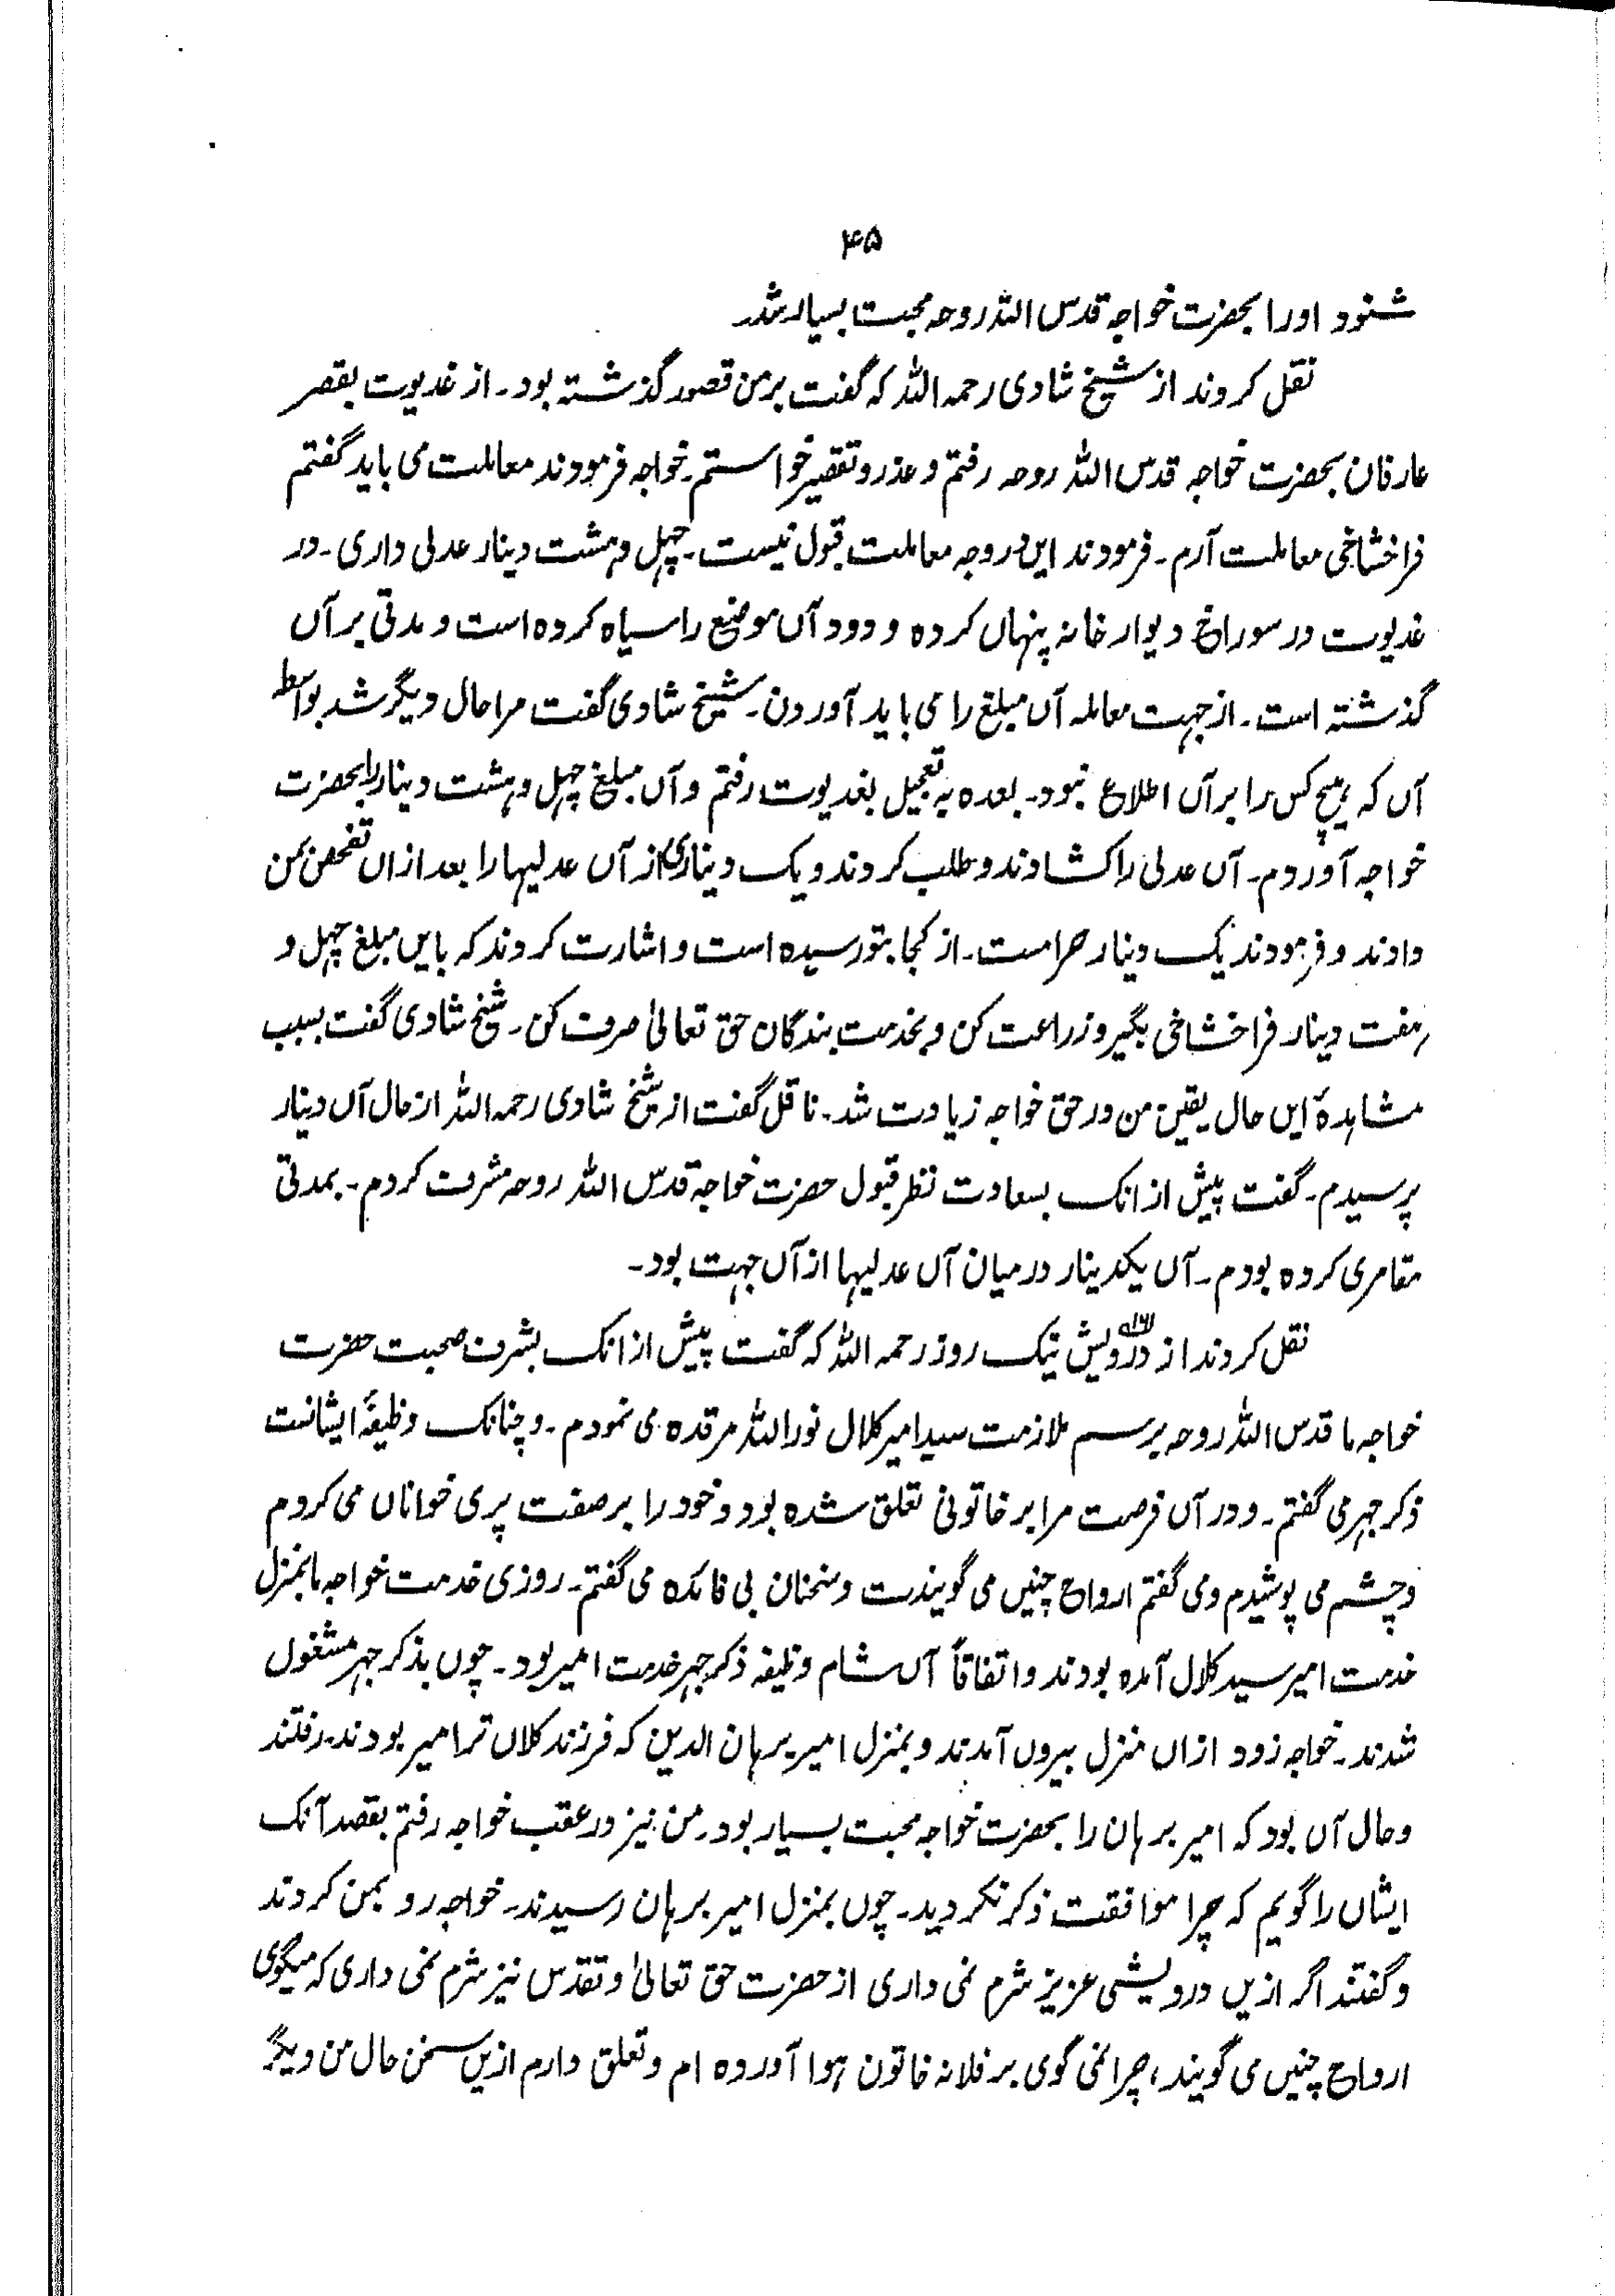 ۴۵
شنود اورا بحضرت خواجہ قدس اللہ روحہ محبت بسیار شد۔
نقل کردند از شیخ شادی رحمہ اللہ کہ گفت بر من قصور گذشتہ بود۔ از غدیوت بقصر
عارفان بحضرت خواجہ قدس اللہ روحہ رفتم و عذر و تقصیر خواستم۔ خواجہ فرمودند معاملت می باید گفتم
فراخشاخی معاملت آرم۔ فرمودند این در وجہ معاملت قبول نیست۔ چہل وہشت دینار عدلی داری۔ در
غدیوت در سوراخ دیوار خانہ پنہاں کردہ و دود آں موضع را سیاہ کردہ است و مدتی بر آں
گذشتہ است۔ از جہت معاملہ آں مبلغ را می باید آوردن۔ شیخ شادی گفت مرا حال دیگر شد بواسطہ
آں کہ ہیچ کس را بر آں اطلاع نبود۔ بعدہ بہ تعجیل بغدیوت رفتم و آں مبلغ چہل وہشت دینار را بحضرت
خواجہ آوردم۔ آں عدلی را کشادند و طلب کردند و یک دیناری از آں عدلیہا را بعد ازاں تفحص بمن
دادند و فرمودند یک دینار حرامست۔ از کجا بتو رسیدہ است و اشارت کردند کہ بایں مبلغ چہل و
ہفت دینار فراخشاخی بگیر و زراعت کن و بخدمت بندگان حق تعالیٰ صرف کن۔ شیخ شادی گفت بسبب
مشاہدۂ ایں حال یقین من در حق خواجہ زیادت شد۔ ناقل گفت از شیخ شادی رحمہ اللہ از حال آں دینار
پرسیدم۔ گفت پیش از انک بسعادت نظر قبول حضرت خواجہ قدس اللہ روحہ مشرف کردم۔ بمدتی
مقامری کردہ بودم۔ آں یکدینار درمیان آں عدلیہا از آں جہت بود۔
نقل کردند از درویش نیک روز رحمہ اللہ کہ گفت پیش از انک بشرف صحبت حضرت
خواجہ ما قدس اللہ روحہ برسم ملازمت سید امیر کلال نور اللہ مرقدہ می نمودم۔ و چنانک وظیفۂ ایشانست
ذکر جہر می گفتم۔ و در آں فرصت مرا بر خاتونی تعلق شدہ بود و خود را بر صفت پری خواناں می کردم
و چشم می پوشیدم و می گفتم ارواح چنیں می گویندت و سخنان بی فائدہ می گفتم۔ روزی خدمت خواجہ ما بمنزل
خدمت امیر سید کلال آمدہ بودند و اتفاقاً آں شام وظیفہ ذکر جہر خدمت امیر بود۔ چوں بذکر جہر مشغول
شدند۔ خواجہ زود ازاں منزل بیروں آمدند و بمنزل امیر برہان الدین کہ فرزند کلاں تر امیر بودند۔ رفتند
و حال آں بود کہ امیر برہان را بحضرت خواجہ محبت بسیار بود۔ من نیز در عقب خواجہ رفتم بقصد آنک
ایشاں را گویم کہ چرا موافقت ذکر نکردید۔ چوں بمنزل امیر برہان رسیدند۔ خواجہ رو بمن کردند
و گفتند اگر ازیں درویشی عزیز شرم نمی داری از حضرت حق تعالیٰ و تقدس نیز شرم نمی داری کہ میگوی
ارواح چنیں می گویند، چرا نمی گوی بر فلانہ خاتون ہوا آوردہ ام و تعلق دارم ازیں سخن حال من دیگر